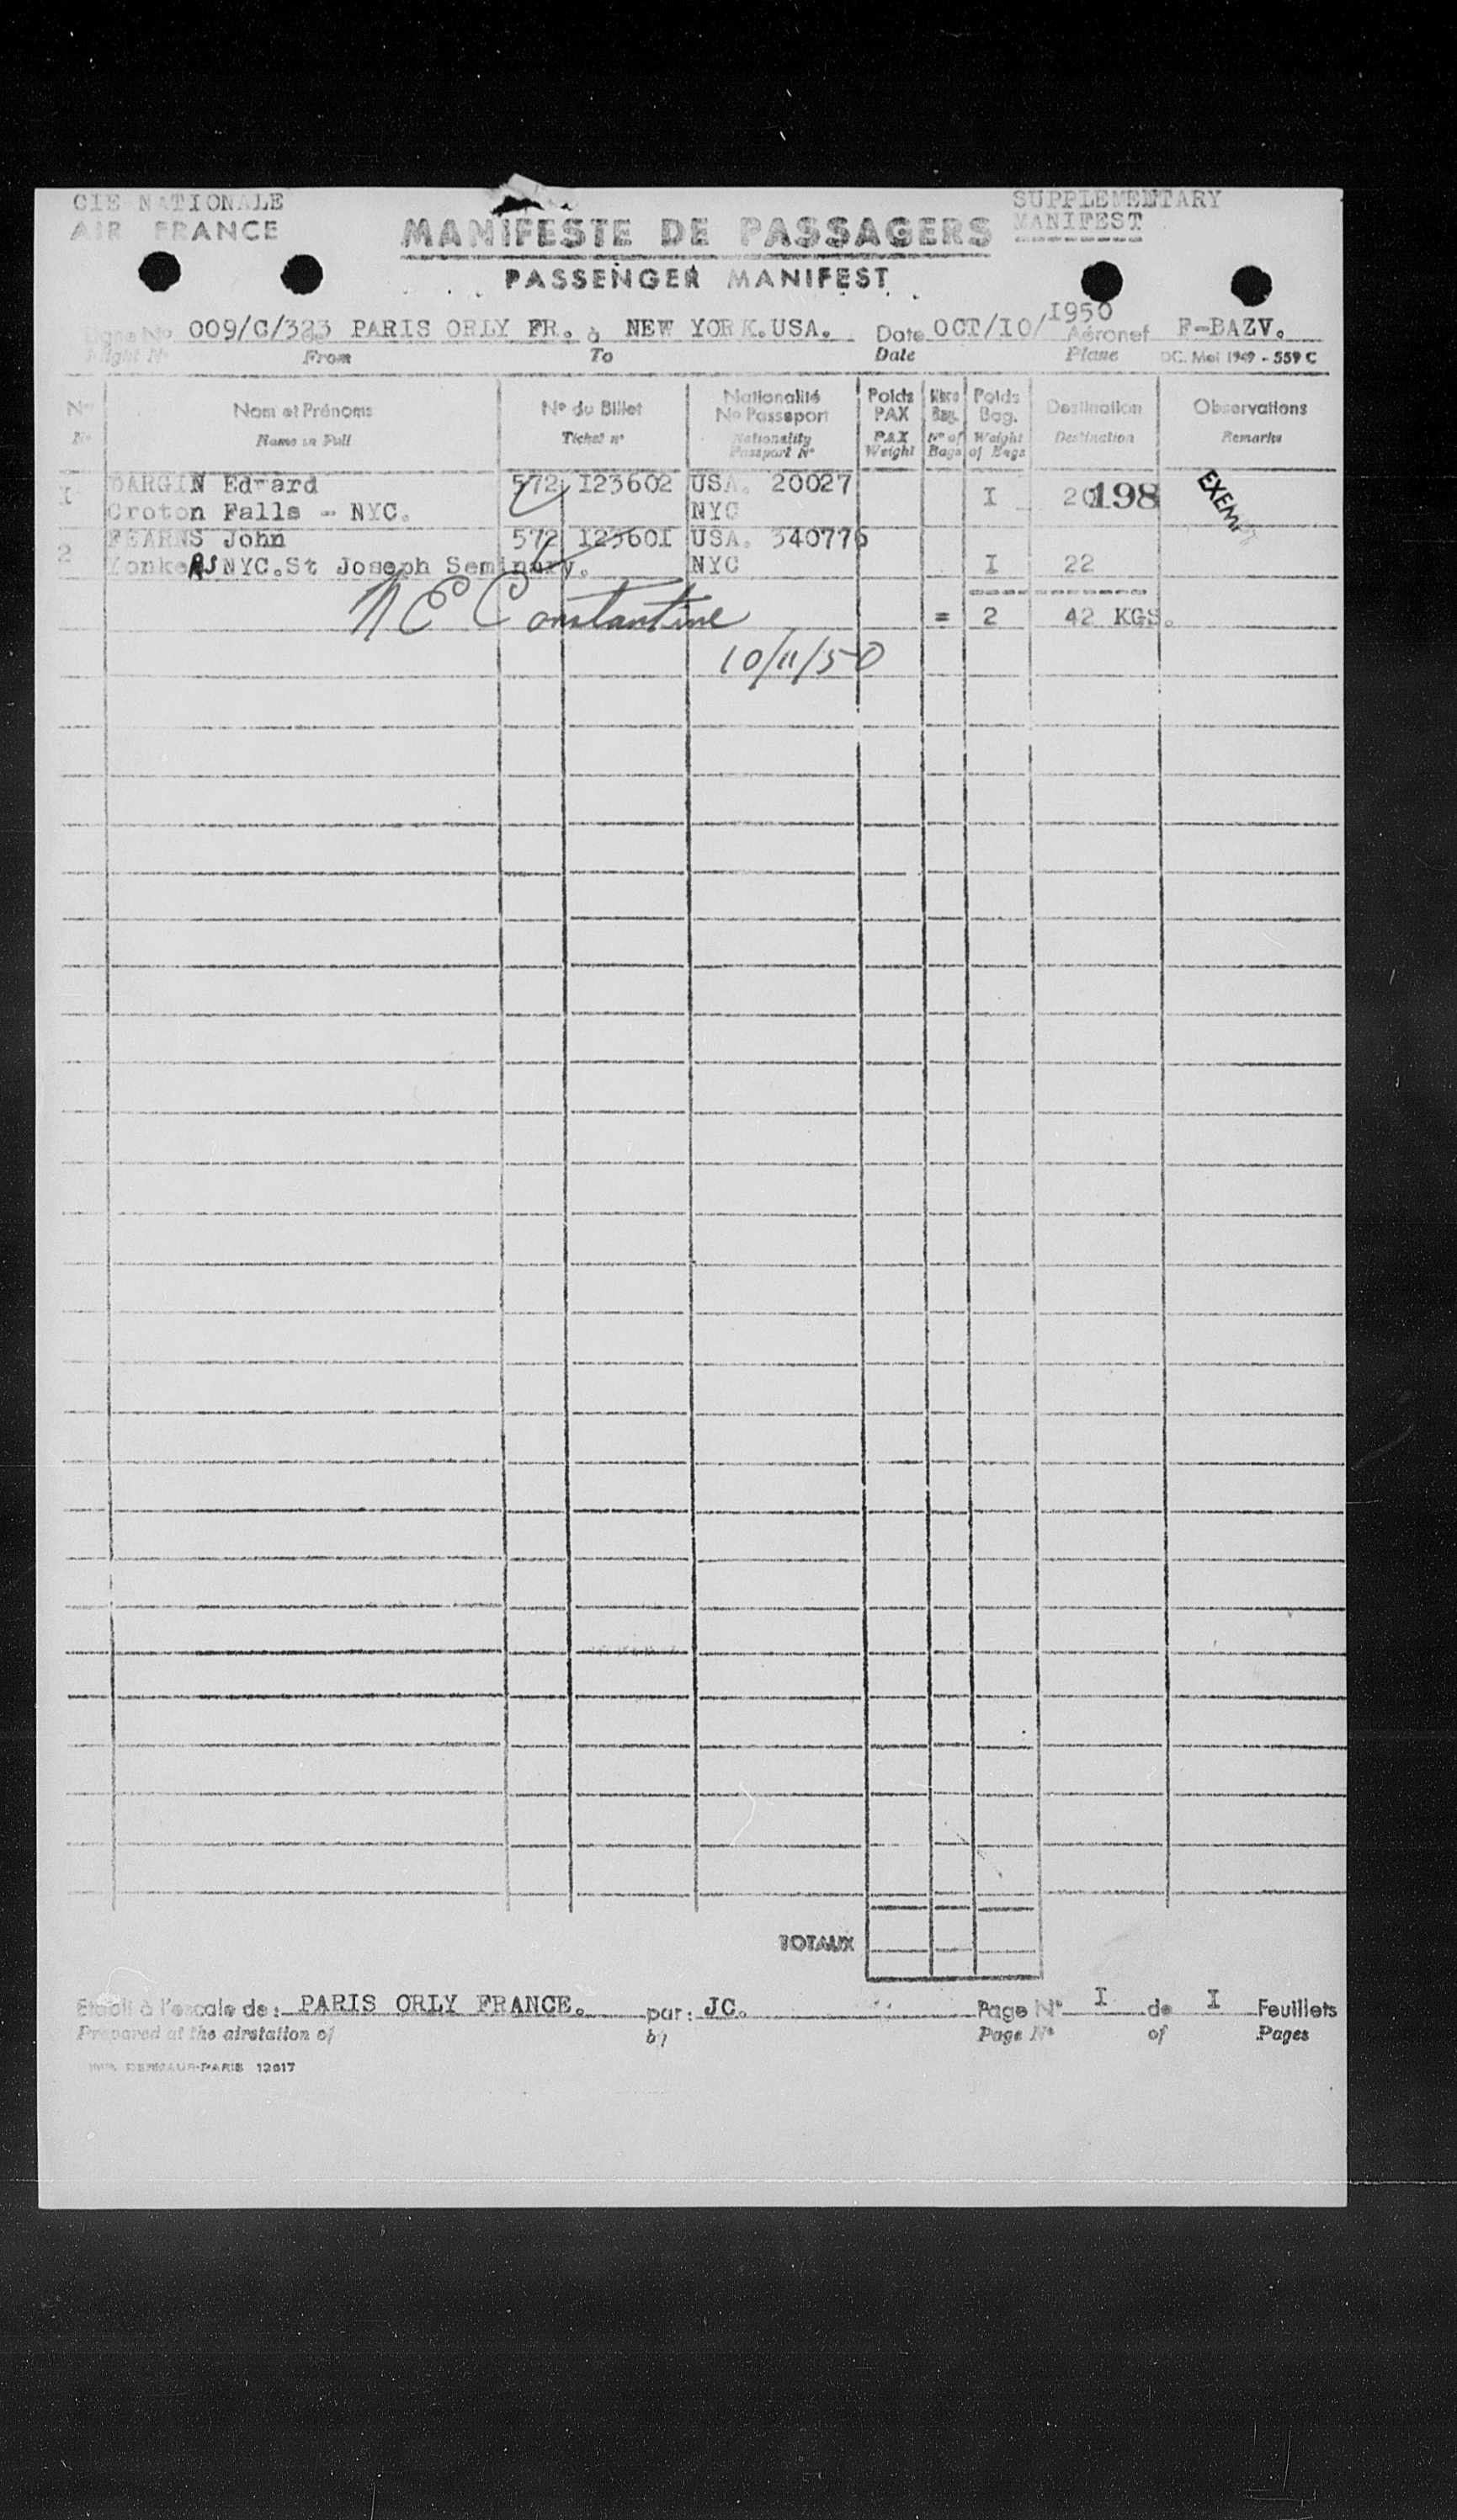 CIE NATIONALE
AIR FRANCE
SUPPLEMENTARY
MANIFEST
MANIFESTE DE PASSAGERS
PASSENGER MANIFEST
Ligne No 009/C/323 de PARIS ORLY FR. à NEW YORK.USA. Date OCT/IO/1950 Aéronef F-BAZV.
Flight No From To Date Plane OC. Mei 1949 - 559 C
No Nom et Prénoms No du Billet Nationalité No Passeport Poids PAX Nbre Bag. Poids Bag. Destination Observations
No Name in Full Ticket no Nationality Passport No PAX Weight No of Bags Weight of Bags Destination Remarks
I DARGIN Edward 572 I23602 USA. 20027 I 20 198 EXEM
Croton Falls - NYC. NYC
2 FEARNS John 572 I2360I USA. 340776
YonkeRS NYC.St Joseph Seminary. NYC I 22
= 2 42 KGS.
N E Constantine
10/11/50
TOTAUX
Etabli à l'escale de: PARIS ORLY FRANCE. par: JC. Page No I de I Feuillets
Prepared at the airstation of by Page No of Pages
PARIS 12017